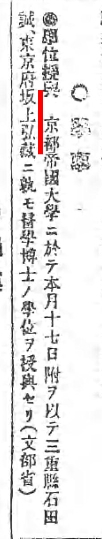 ○彙報
◉學位授與 京都帝國大學ニ於テ本月十七日附ヲ以テ三重縣石田
誠、東京府坂上弘藏ニ孰モ醫學博士ノ學位ヲ授與セリ(文部省)